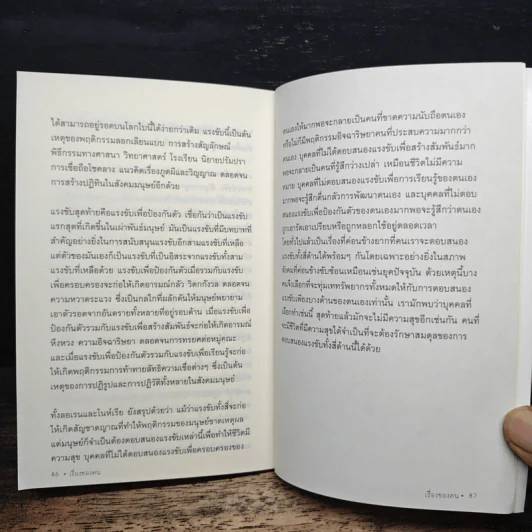 ได้สามารถอยู่รอดบนโลกใบนี้ได้ง่ายกว่าเดิม แรงขับนี้เป็นต้น
เหตุของพฤติกรรมลอกเลียนแบบ การสร้างสัญลักษณ์
พิธีกรรมทางศาสนา วิทยาศาสตร์ โรงเรียน นิยายปรัมปรา
การเชื่อถือโชคลาง แนวคิดเรื่องภูตผีและวิญญาณ ตลอดจน
การสร้างปฏิทินในสังคมมนุษย์อีกด้วย
แรงขับสุดท้ายคือแรงขับเพื่อป้องกันตัว เชื่อกันว่าเป็นแรงขับ
แรกสุดที่เกิดขึ้นในเผ่าพันธุ์มนุษย์ มันเป็นแรงขับที่มีบทบาทที่
สำคัญอย่างยิ่งในการสนับสนุนแรงขับอีกสามแรงขับที่เหลือ
แต่ตัวของมันเองก็เป็นแรงขับที่เป็นอิสระจากแรงขับทั้งสาม
แรงขับที่เหลือด้วย แรงขับเพื่อป้องกันตัวเมื่อรวมกับแรงขับ
เพื่อครอบครองจะก่อให้เกิดอารมณ์กลัว วิตกกังวล ตลอดจน
ความหวาดระแวง ซึ่งเป็นกลไกที่ผลักดันให้มนุษย์พยายาม
เอาตัวรอดจากอันตรายทั้งหลายที่อยู่รอบด้าน เมื่อแรงขับเพื่อ
ป้องกันตัวรวมกับแรงขับเพื่อสร้างสัมพันธ์จะก่อให้เกิดอารมณ์
หึงหวง ความอิจฉาริษยา ตลอดจนการทรยศต่อหมู่คณะ
และเมื่อแรงขับเพื่อป้องกันตัวรวมกับแรงขับเพื่อเรียนรู้จะก่อ
ให้เกิดพฤติกรรมการท้าทายลัทธิความเชื่อต่างๆ ซึ่งเป็นต้น
เหตุของการปฏิรูปและการปฏิวัติทั้งหลายในสังคมมนุษย์
ทั้งลอเรนและไนห์เรีย ยังสรุปด้วยว่า แม้ว่าแรงขับทั้งสี่จะก่อ
ให้เกิดสัญชาตญาณที่ทำให้พฤติกรรมของมนุษย์ขาดเหตุผล
แต่มนุษย์ก็จำเป็นต้องตอบสนองแรงขับเหล่านี้เพื่อทำให้ชีวิตมี
ความสุข บุคคลที่ไม่ได้ตอบสนองแรงขับเพื่อครอบครองของ
86 • เรื่องของคน
ตนเองให้มากพอจะกลายเป็นคนที่ขาดความนับถือตนเอง
หรือไม่ก็มีพฤติกรรมอิจฉาริษยาคนที่ประสบความมากกว่า
ตนเอง บุคคลที่ไม่ได้ตอบสนองแรงขับเพื่อสร้างสัมพันธ์มาก
พอจะกลายเป็นคนที่รู้สึกว่างเปล่า เหมือนชีวิตไม่มีความ
หมาย บุคคลที่ไม่ตอบสนองแรงขับเพื่อการเรียนรู้ของตนเอง
มากพอจะรู้สึกตื่นกลัวการพัฒนาตนเอง และบุคคลที่ไม่ตอบ
สนองแรงขับเพื่อป้องกันตัวของตนเองมากพอจะรู้สึกว่าตนเอง
ถูกเอารัดเอาเปรียบหรือถูกหลอกใช้อยู่ตลอดเวลา
โดยทั่วไปแล้วเป็นเรื่องที่ค่อนข้างยากที่คนเราจะตอบสนอง
แรงขับทั้งสี่ด้านได้พร้อมๆ กันโดยเฉพาะอย่างยิ่งในสภาพ
สังคมที่ค่อนข้างซับซ้อนเหมือนเช่นยุคปัจจุบัน ด้วยเหตุนี้บาง
คนจึงเลือกที่จะทุ่มเททรัพยากรทั้งหมดให้กับการตอบสนอง
แรงขับเพียงบางด้านของตนเองเท่านั้น เรามักพบว่าบุคคลที่
เลือกทำเช่นนี้ สุดท้ายแล้วมักจะไม่มีความสุขอีกเช่นกัน คนที่
จะมีชีวิตที่มีความสุขได้จำเป็นที่จะต้องรักษาสมดุลของการ
ตอบสนองแรงขับทั้งสี่ด้านนี้ได้ด้วย
เรื่องของคน • 87